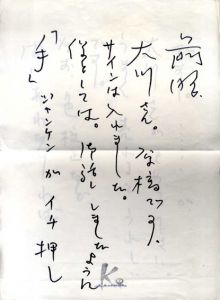 前略
大川さん。
サインは入れました。
僕としては。お話ししましたように
「手」ジャンケンがイチ押し
K